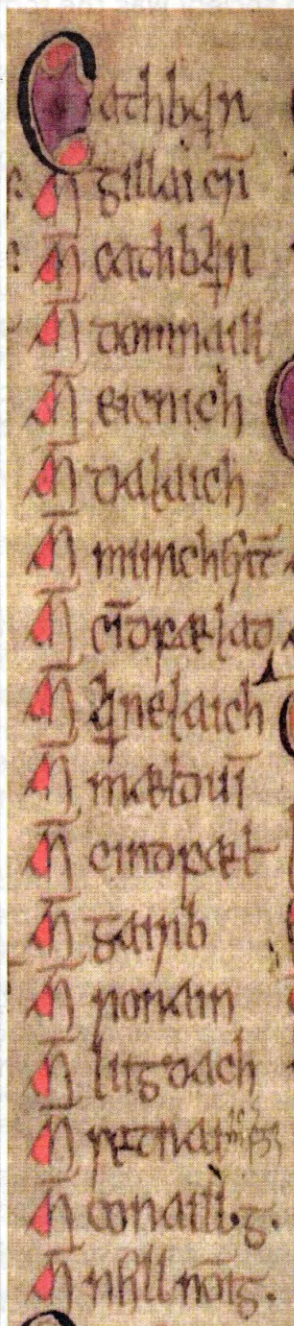 Cathbarr
m̄ gillai cr̄i
m̄ cathbairr
m̄ domnaill
m̄ eicnich
m̄ dalaich
m̄ muirchert̄
m̄ cīdfaelad
m̄ airnelaich
m̄ maeldui
m̄ cindfael
m̄ gairb
m̄ ronain
m̄ lugdach
m̄ setnai
m̄ conaill .g.
m̄ neill nōig.